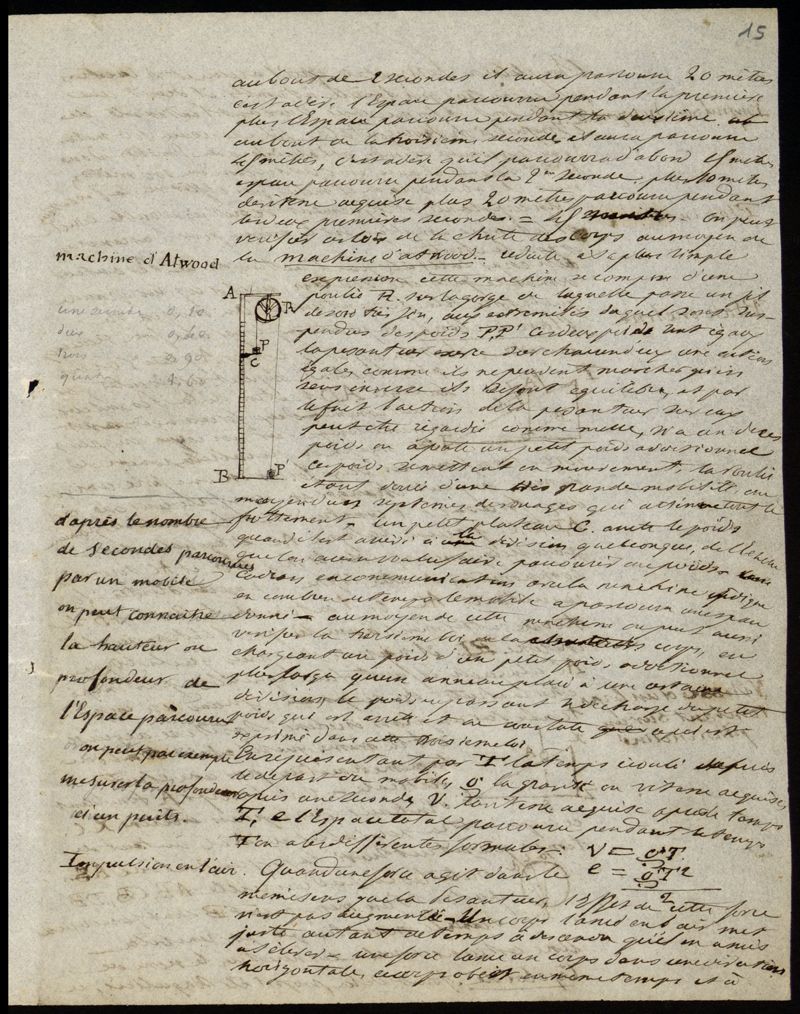 15
au bout de 2 secondes il aura parcouru 20 mètres
c'est adire l'Espace parcouru pendant la première
plus l'Espace parcouru pendant la deuxième. et
au bout de la troisieme seconde, il aura parcouru
45 mètres, c'est adire qu'il parcourra d'abord 5 mètres
espace parcouru pendant la 1ere seconde plus 10 metres
de vitesse acquise plus 20 mètres parcouru pendant
les deux premieres secondes. = 45 On peut
verifier les lois de la chute des corps au moyen de
la machine d'atwood - reduite a sa plus simple
machine d'Atwood
expression cette machine se compose d'une
poulie R. sur la gorge de laquelle passe un fil
de soie très fin, aux extremités duquel sont sus-
pendus des poids P, P' Ces deux poids sont egaux
la pesanteur exerce sur chacun d'eux une action
égale, comme ils ne peuvent marcher qu'en
sens inverse ils se font equilibre, et par
le fait l'action de la pesanteur sur eux
peut etre regardée comme nulle, si a un de ces
poids on ajoute un petit poids additionnel
ces poids se mettent en mouvement. la poulie
étant douée d'une très grande mobilité au
moyen d'un systeme de rouages qui attenuent le
frottement - Un petit plateau C. arrete le poids
quand il est arrivé à la division quelconque, de l'Echelle
que l'on aura voulu faire parcourir au poids - un
Cadran en communication avec la machine indique
en combien de temps le mobile a parcouru un espace
donné - au moyen de cette machine on peut aussi
verifier la troisieme loi de la corps, en
chargeant un poids d'un petit poids additionnel
plus large qu'un anneau placé à une certaine
division, le poids en passant se decharge du petit
poids qui est arreté et on constate
exprimé dans cette troisieme loi
A
R
P
C
B
P'
une seconde 0,10
deux 0,40
trois 0,90
quatre 1,60
d'après le nombre
de secondes parcourues
par un mobile
on peut connaître
la hauteur ou
profondeur de
l'Espace parcouru
on peut par exemple
mesurer la profondeur
d'un puits.
En representant par T le temps écoulé depuis
le depart du mobile, g la gravité ou vitesse acquise
après une seconde, V. la vitesse acquise après le temps
T. e l'Espace total parcouru pendant le temps
T on a les differentes formules: V = gT
e = gT²
2
Impulsion en l'air. Quand une force agit dans le
meme sens que la pesanteur, l'Effet de cette force
n'est pas augmenté - Un corps lancé en l'air met
juste autant de temps à descendre qu'il en a mis
a s'élever - une force lance un corps dans une direction
horizontale, ce corps obeit en meme temps et à